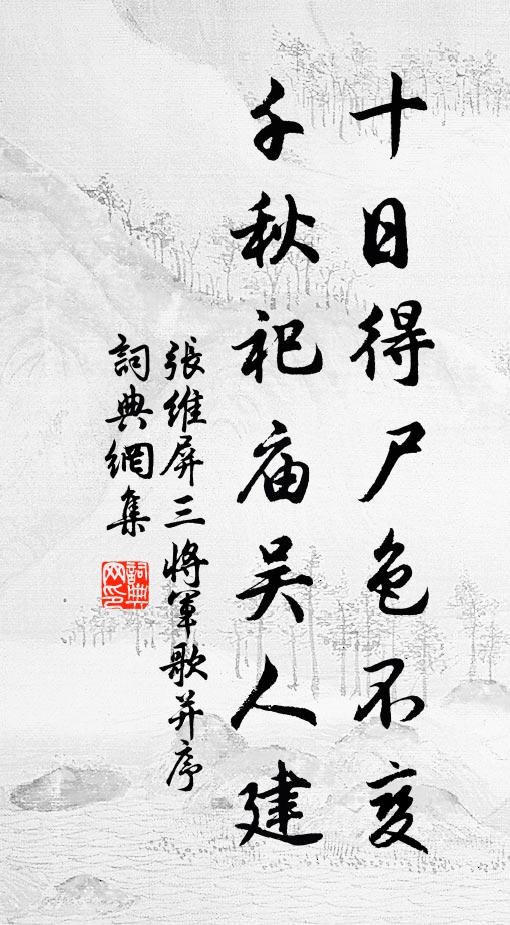 十日得尸色不变
千秋祀庙吴人建
張維屏三將軍歌并序
詞典網集
詞典
网印